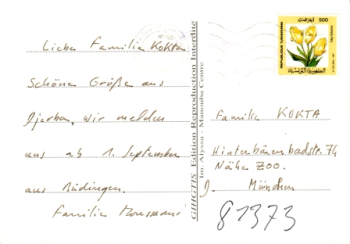 Liebe Familie Kokta
Schöne Grüße aus
Djerba, wir melden
uns ab 1. September
aus Büdingen.
Familie
GHIGTIS Edition Reproduction Interdite
Im. Alyssa - Manouba Centre
REPUBLIQUE TUNISIENNE
500
Familie KOKTA
Hinterbärenbadstr. 74
Nähe ZOO.
München
81373